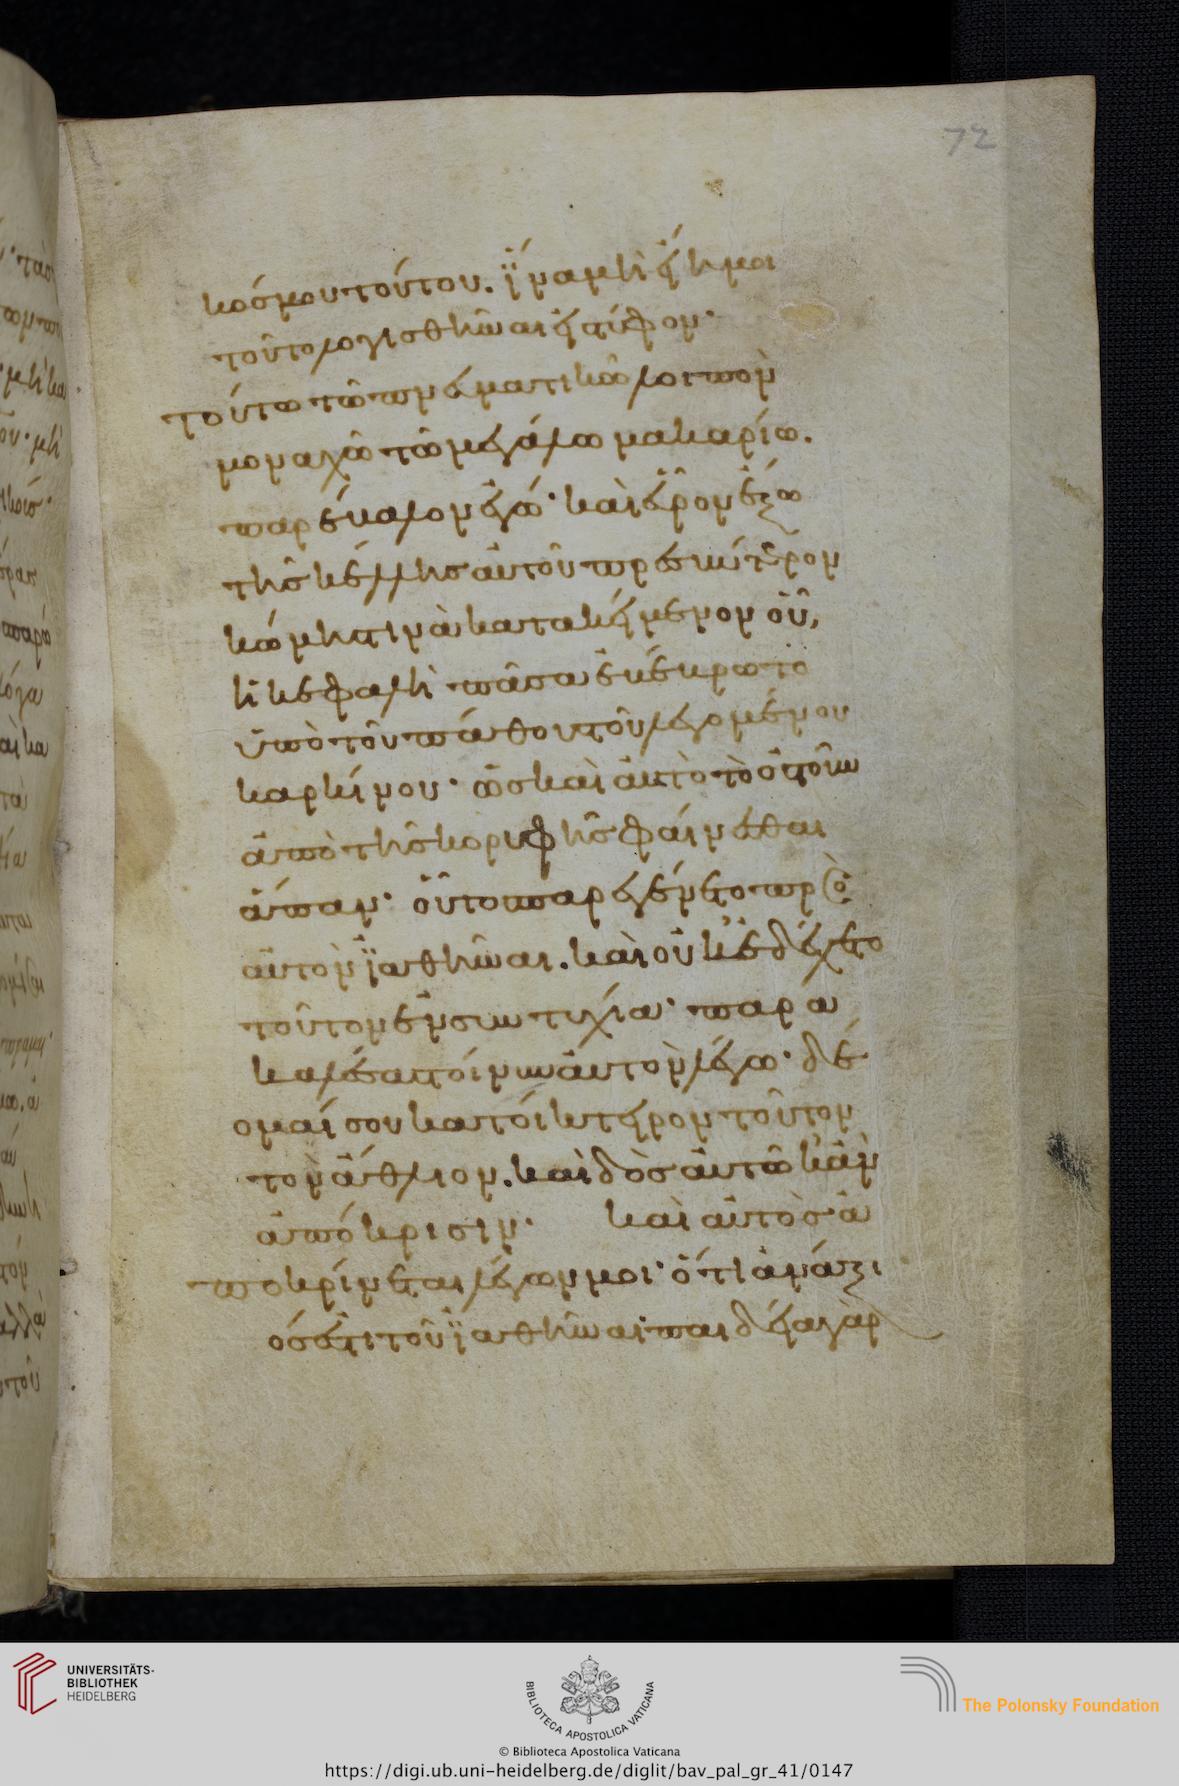 72
κόσμου τούτου. ἵνα μὴ εἴη μοι
τοῦτο λογισθῆναι εἰς τύφον·
τούτω τῶ πνευματικῶ λοιπὸν
μοναχῶ τῶ μεγάλω μακαρίω.
παρέβαλον ἐγώ· καὶ εὗρον ἔξω
τῆς κέλλης αὐτοῦ πρεσβύτερον
κώμης τινὰ κατακείμενον οὗ,
ἡ κεφαλὴ πᾶσα ἐβέβρωτο
ὑπὸ τοῦ πάθους τοῦ λεγομένου
καρκίνου· ὡς καὶ αὐτὸ τὸ ὀστοῦν
ἀπὸ τῆς κορυφῆς φαίνεσθαι
ἅπαν· οὗτος παρεγένετο πρὸς
αὐτὸν ἰαθῆναι. καὶ οὐκ ἐδέχετο
τοῦτον ἐν συντυχία· παρά
καλέσας τοίνυν αὐτὸν λέγω· δέ
ομαί σου κατοίκτειρον τοῦτον
τὸν ἄθλιον. καὶ δὸς αὐτῶ κἂν
ἀπόκρισιν· καὶ αὐτὸς ἀ
ποκρίνεται λέγων μοι· ὅτι ἀνάξι
ός ἐστι τοῦ ἰαθῆναι· παιδεία γὰρ
UNIVERSITÄTS-
BIBLIOTHEK
HEIDELBERG
BIBLIOTECA APOSTOLICA VATICANA
The Polonsky Foundation
© Biblioteca Apostolica Vaticana
https://digi.ub.uni-heidelberg.de/diglit/bav_pal_gr_41/0147